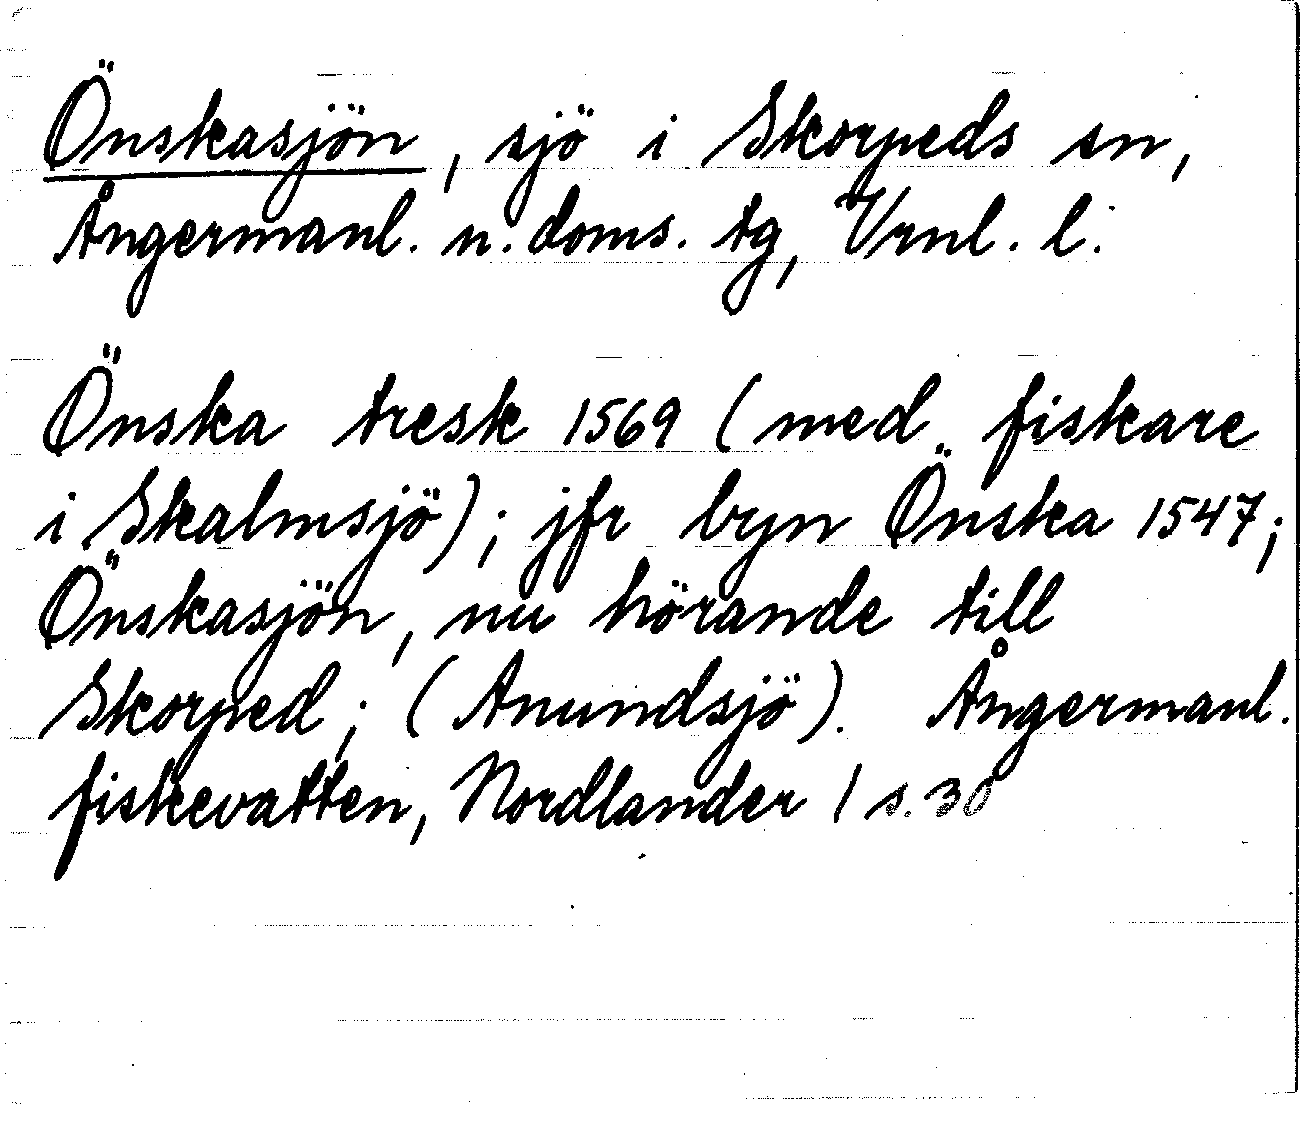 Önskasjön, sjö i Skorpeds sn,
Ångermanl. n. doms. tg, Vrnl. l.
Önska tresk 1569 (med fiskare
i Skalmsjö); jfr byn Önska 1547;
Önskasjön, nu hörande till
Skorped; (Anundsjö). Ångermanl.
fiskevatten, Nordlander 1 s. 30